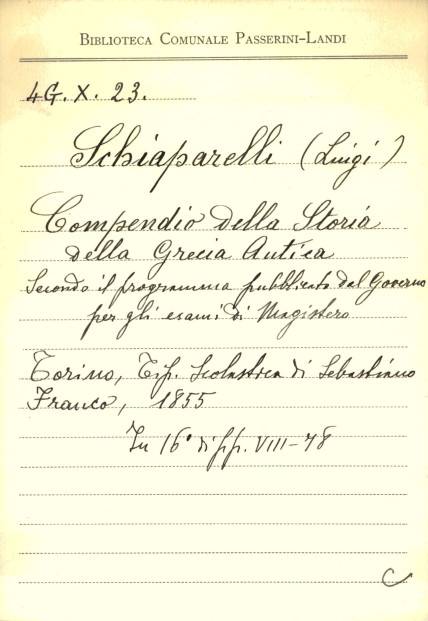 BIBLIOTECA COMUNALE PASSERINI-LANDI
4G. X. 23.
Schiaparelli (Luigi)
Compendio della Storia
della Grecia Antica
Secondo il programma pubblicato dal Governo
per gli esami di Magistero
Torino, Tip. Scolastica di Sebastiano
Franco, 1855
In 16° di pp. VIII-78
C